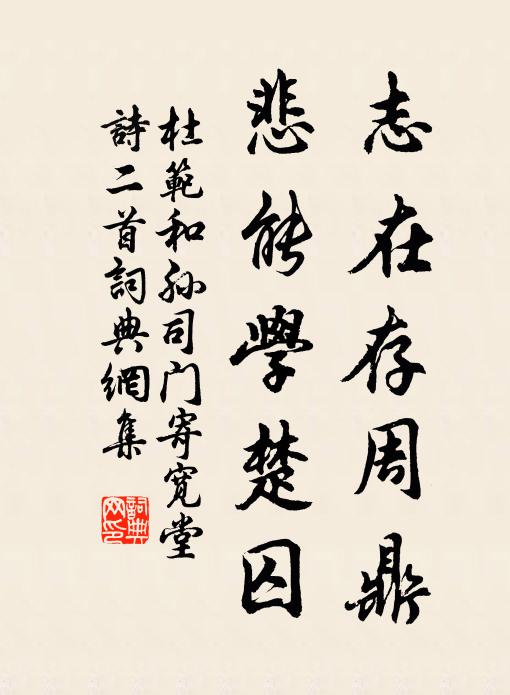 志在存周鼎
悲能學楚囚
杜範和孙司门寄寬堂
詩二首詞典網集
詞典
网印